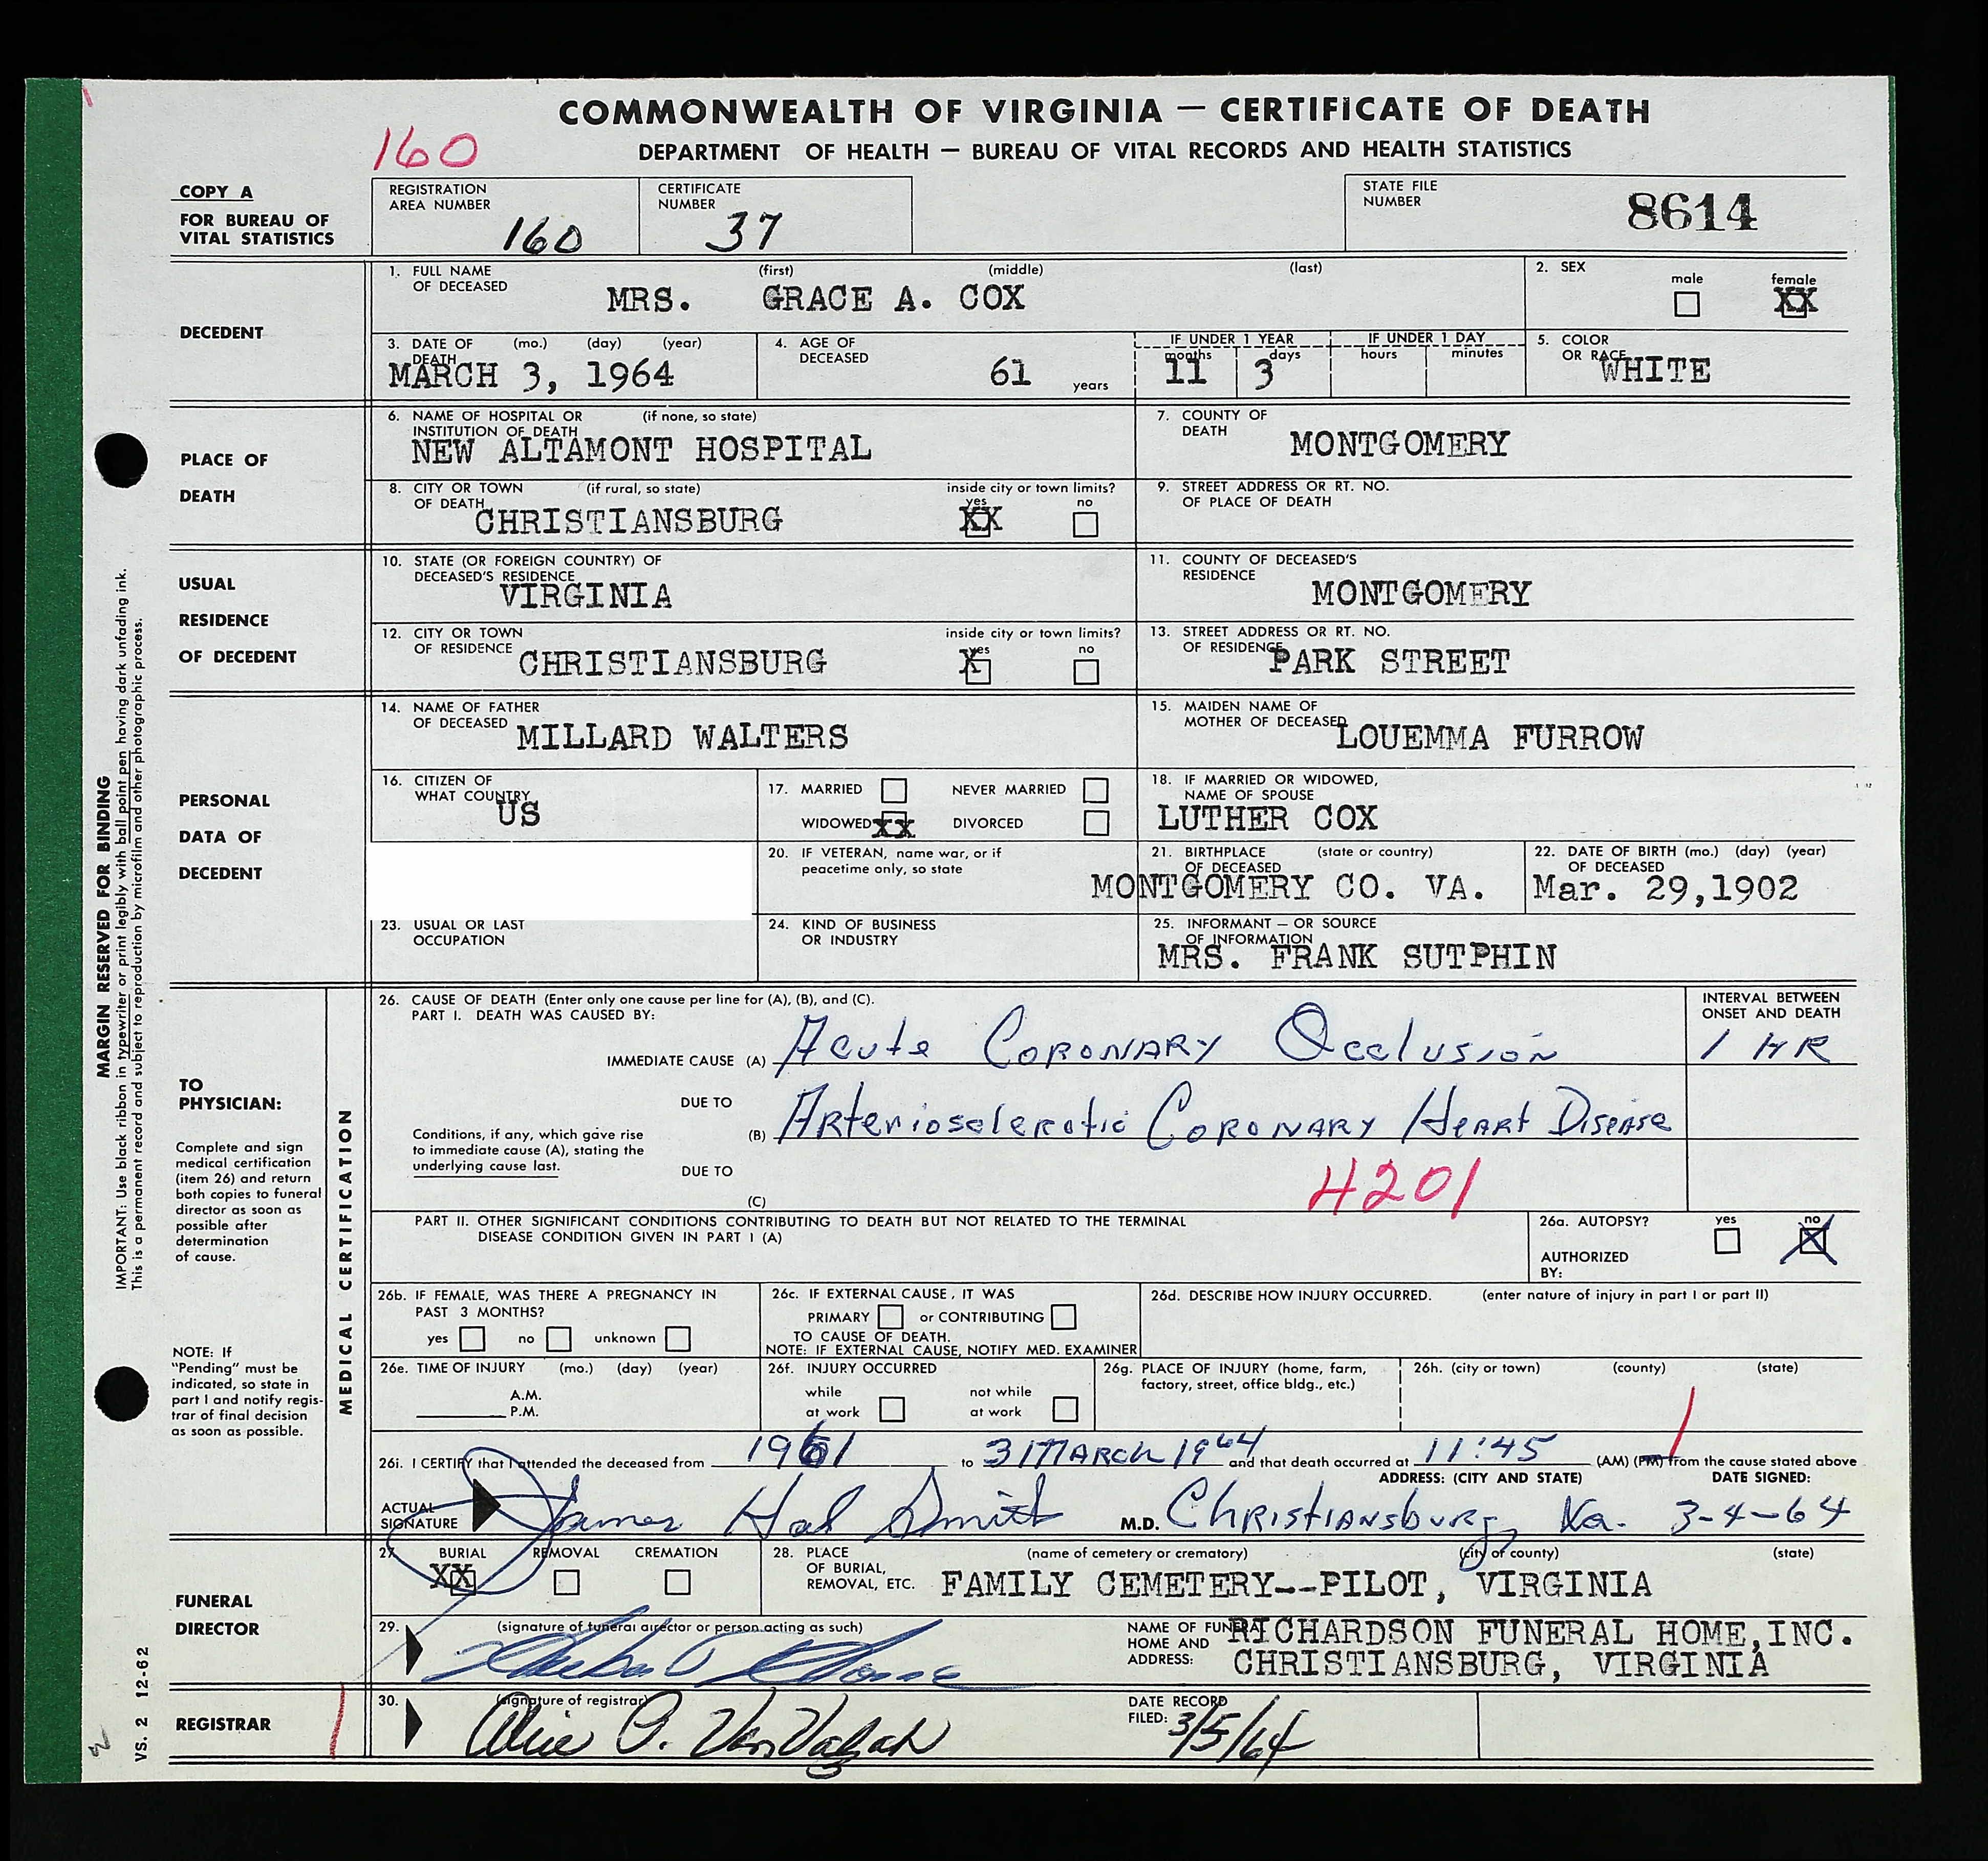 COMMONWEALTH OF VIRGINIA — CERTIFICATE OF DEATH
160
DEPARTMENT OF HEALTH — BUREAU OF VITAL RECORDS AND HEALTH STATISTICS
COPY A
FOR BUREAU OF
VITAL STATISTICS
REGISTRATION
AREA NUMBER
160
CERTIFICATE
NUMBER
37
STATE FILE
NUMBER
8614
DECEDENT
1. FULL NAME (first) (middle) (last)
OF DECEASED
MRS. GRACE A. COX
2. SEX
male female
XX
3. DATE OF (mo.) (day) (year)
DEATH
MARCH 3, 1964
4. AGE OF
DECEASED
61 years
IF UNDER 1 YEAR
months days
11 3
IF UNDER 1 DAY
hours minutes
5. COLOR
OR RACE
WHITE
PLACE OF
DEATH
6. NAME OF HOSPITAL OR (if none, so state)
INSTITUTION OF DEATH
NEW ALTAMONT HOSPITAL
7. COUNTY OF
DEATH
MONTGOMERY
8. CITY OR TOWN (if rural, so state)
OF DEATH
CHRISTIANSBURG
inside city or town limits?
yes no
XX
9. STREET ADDRESS OR RT. NO.
OF PLACE OF DEATH
USUAL
RESIDENCE
OF DECEDENT
10. STATE (OR FOREIGN COUNTRY) OF
DECEASED'S RESIDENCE
VIRGINIA
11. COUNTY OF DECEASED'S
RESIDENCE
MONTGOMERY
12. CITY OR TOWN
OF RESIDENCE
CHRISTIANSBURG
inside city or town limits?
yes no
X
13. STREET ADDRESS OR RT. NO.
OF RESIDENCE
PARK STREET
PERSONAL
DATA OF
DECEDENT
14. NAME OF FATHER
OF DECEASED
MILLARD WALTERS
15. MAIDEN NAME OF
MOTHER OF DECEASED
LOUEMMA FURROW
16. CITIZEN OF
WHAT COUNTRY
US
17. MARRIED NEVER MARRIED
WIDOWED XX DIVORCED
18. IF MARRIED OR WIDOWED,
NAME OF SPOUSE
LUTHER COX
20. IF VETERAN, name war, or if
peacetime only, so state
21. BIRTHPLACE (state or country)
OF DECEASED
MONTGOMERY CO. VA.
22. DATE OF BIRTH (mo.) (day) (year)
OF DECEASED
Mar. 29,1902
23. USUAL OR LAST
OCCUPATION
24. KIND OF BUSINESS
OR INDUSTRY
25. INFORMANT — OR SOURCE
OF INFORMATION
MRS. FRANK SUTPHIN
MARGIN RESERVED FOR BINDING
IMPORTANT: Use black ribbon in typewriter or print legibly with ball point pen having dark unfading ink.
This is a permanent record and subject to reproduction by microfilm and other photographic process.
TO
PHYSICIAN:
Complete and sign
medical certification
(item 26) and return
both copies to funeral
director as soon as
possible after
determination
of cause.
NOTE: If
"Pending" must be
indicated, so state in
part I and notify regis-
trar of final decision
as soon as possible.
MEDICAL CERTIFICATION
26. CAUSE OF DEATH (Enter only one cause per line for (A), (B), and (C).
PART I. DEATH WAS CAUSED BY:
INTERVAL BETWEEN
ONSET AND DEATH
IMMEDIATE CAUSE (A) Acute Coronary Occlusion 1 HR
DUE TO
Conditions, if any, which gave rise
to immediate cause (A), stating the
underlying cause last.
(B) Arteriosclerotic Coronary Heart Disease
DUE TO
(C)
4201
PART II. OTHER SIGNIFICANT CONDITIONS CONTRIBUTING TO DEATH BUT NOT RELATED TO THE TERMINAL
DISEASE CONDITION GIVEN IN PART I (A)
26a. AUTOPSY? yes no
X
AUTHORIZED
BY:
26b. IF FEMALE, WAS THERE A PREGNANCY IN
PAST 3 MONTHS?
yes no unknown
26c. IF EXTERNAL CAUSE, IT WAS
PRIMARY or CONTRIBUTING
TO CAUSE OF DEATH.
NOTE: IF EXTERNAL CAUSE, NOTIFY MED. EXAMINER
26d. DESCRIBE HOW INJURY OCCURRED. (enter nature of injury in part I or part II)
26e. TIME OF INJURY (mo.) (day) (year)
A.M.
P.M.
26f. INJURY OCCURRED
while not while
at work at work
26g. PLACE OF INJURY (home, farm,
factory, street, office bldg., etc.)
26h. (city or town) (county) (state)
26i. I CERTIFY that I attended the deceased from 1961 to 3 March 1964 and that death occurred at 11:45 (AM) (PM) from the cause stated above
ADDRESS: (CITY AND STATE) DATE SIGNED:
ACTUAL
SIGNATURE
James Hal Smith M.D. Christiansburg, Va. 3-4-64
FUNERAL
DIRECTOR
27. BURIAL REMOVAL CREMATION
XX
28. PLACE (name of cemetery or crematory) (city or county) (state)
OF BURIAL,
REMOVAL, ETC.
FAMILY CEMETERY--PILOT, VIRGINIA
29. (signature of funeral director or person acting as such)
NAME OF FUNERAL
HOME AND
ADDRESS:
RICHARDSON FUNERAL HOME,INC.
CHRISTIANSBURG, VIRGINIA
REGISTRAR
30. (signature of registrar)
DATE RECORD
FILED:
3/5/64
VS. 2 12-62